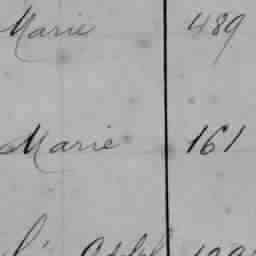 Marie 489
Marie 161